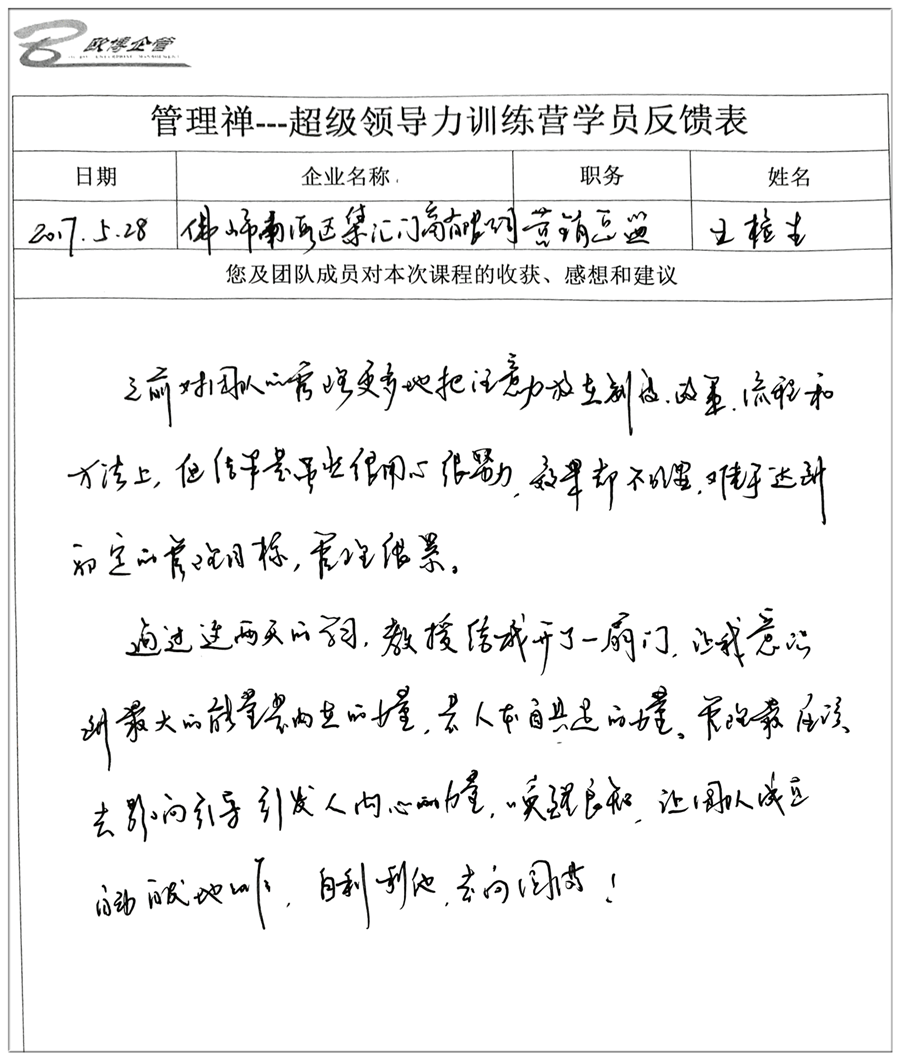 欧博企管
管理禅---超级领导力训练营学员反馈表
日期 企业名称 职务 姓名
2017.5.28 佛山市南海区集汇门窗有限公司 营销总监 王桂生
您及团队成员对本次课程的收获、感想和建议
之前对团队的管理更多地把注意力放在制度、政策、流程和
方法上，但结果是虽然很用心很努力，效果却不明显，难于达到
制定的管理目标，管理结果。
通过这两天的学习，教授给我开了一扇门，让我意识
到最大的能量是内在的力量，是人本自具足的力量。管理最应该
去影响引导引发人内心的力量，唤醒良知，让团队成员
自动自发地工作，自利利他，走向圆满！